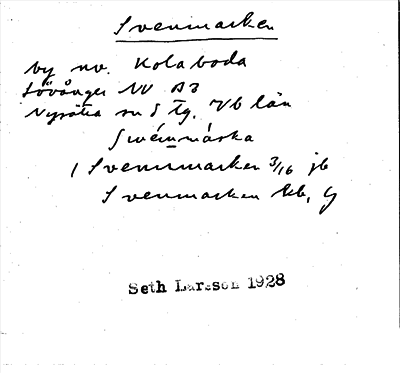 Svenmarken
by nv. Kolaboda
Lövånger NV B3
Nysätra sn S Tg. Vb län
Swénmárka
1 Svenmarken 3/16 jb
Svenmarken kb,
Seth Larsson 1928